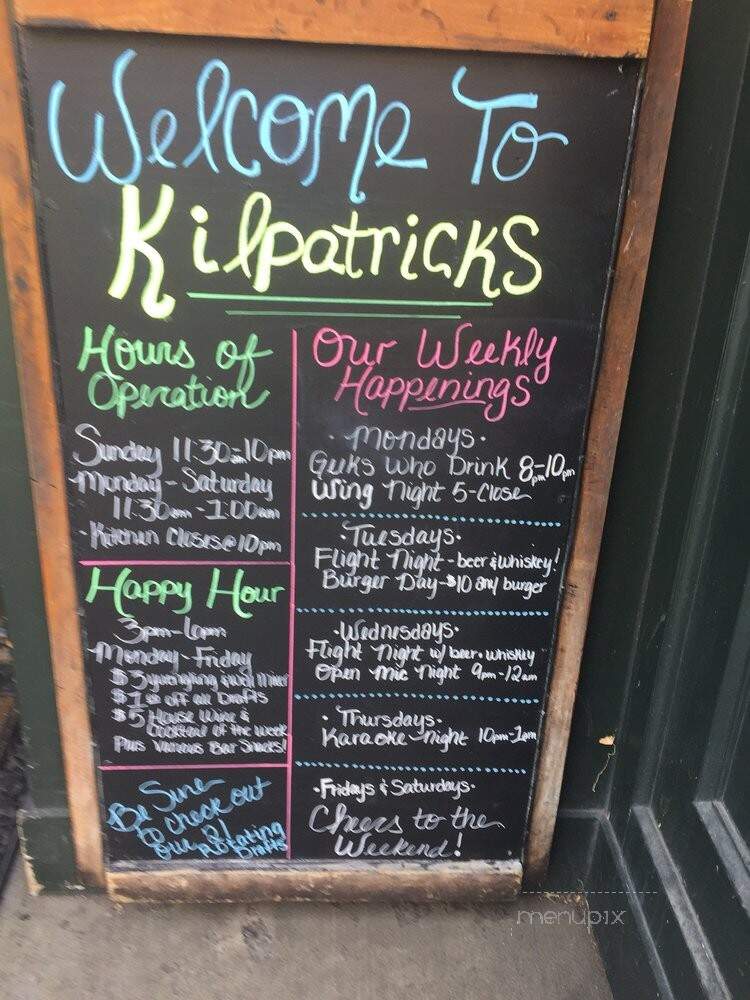 Welcome To
Kilpatricks
Hours of
Operation
Sunday 11:30am-10pm
Monday - Saturday
11:30am - 1:00am
-Kitchen closes@10pm
Happy Hour
3pm-6pm
Monday-Friday
$3 yuengling &
$1 off all Drafts
$5 House Wine &
Cocktail of the week
Plus Various Bar Snacks!
Be Sure
to check out
our 21
Rotating
Drafts
Our Weekly
Happenings
·Mondays·
Geeks Who Drink 8pm-10pm
Wing Night 5-Close
·Tuesdays·
Flight Night - beer & whiskey!
Burger Day-$10 any burger
·Wednesdays·
Flight Night w/ beer & whiskey
Open Mic Night 9pm-12am
·Thursdays·
Karaoke night 10pm-1am
·Fridays & Saturdays·
Cheers to the
Weekend!
menupix